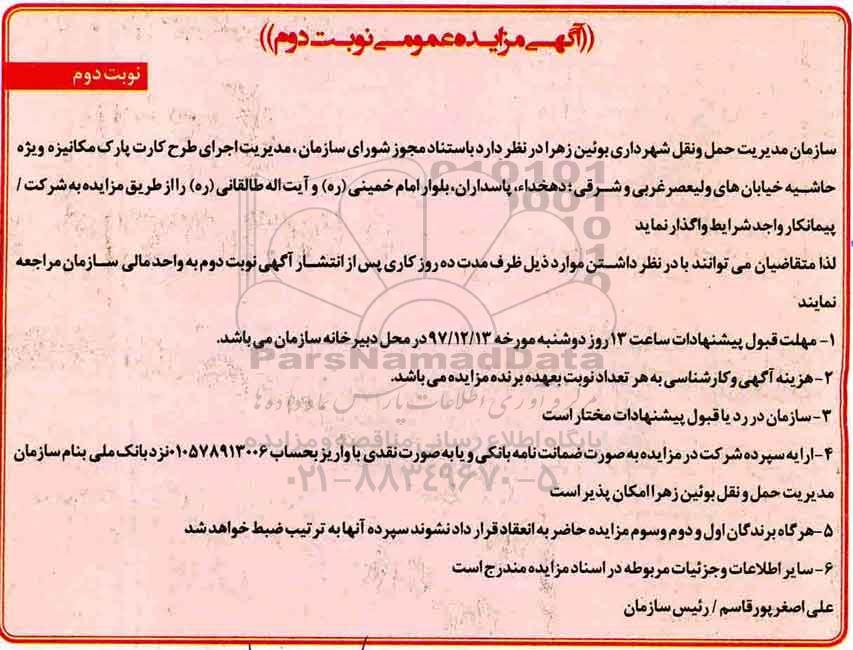 ((آگهی مزایده عمومی نوبت دوم))
نوبت دوم
سازمان مدیریت حمل ونقل شهرداری بوئین زهرا در نظر دارد باستناد مجوز شورای سازمان ، مدیریت اجرای طرح کارت پارک مکانیزه ویژه
حاشیه خیابان های ولیعصر غربی و شرقی ؛ دهخداء، پاسداران، بلوار امام خمینی (ره) و آیت اله طالقانی (ره) را از طریق مزایده به شرکت /
پیمانکار واجد شرایط واگذار نماید
لذا متقاضیان می توانند با در نظر داشتن موارد ذیل ظرف مدت ده روز کاری پس از انتشار آگهی نوبت دوم به واحد مالی سازمان مراجعه
نمایند
۱- مهلت قبول پیشنهادات ساعت ۱۳ روز دوشنبه مورخه ۹۷/۱۲/۱۳ در محل دبیرخانه سازمان می باشد.
ParsNamadData
۲-هزینه آگهی وکارشناسی به هر تعداد نوبت بعهده برنده مزایده می باشد.
مرکز فرآوری اطلاعات پارس نماد داده ها
۳-سازمان در رد یا قبول پیشنهادات مختار است
پایگاه اطلاع رسانی مناقصه و مزایده
۴-ارایه سپرده شرکت در مزایده به صورت ضمانت نامه بانکی و یا به صورت نقدی با واریز بحساب ۰۱۰۵۷۸۹۱۳۰۰۶ نزد بانک ملی بنام سازمان
۰۲۱-۸۸۳۴۹۶۷۰-۵
مدیریت حمل و نقل بوئین زهرا امکان پذیر است
۵-هر گاه برندگان اول و دوم وسوم مزایده حاضر به انعقاد قرار داد نشوند سپرده آنها به ترتیب ضبط خواهد شد
۶-سایر اطلاعات وجزئیات مربوطه در اسناد مزایده مندرج است
علی اصغر پور قاسم / رئیس سازمان